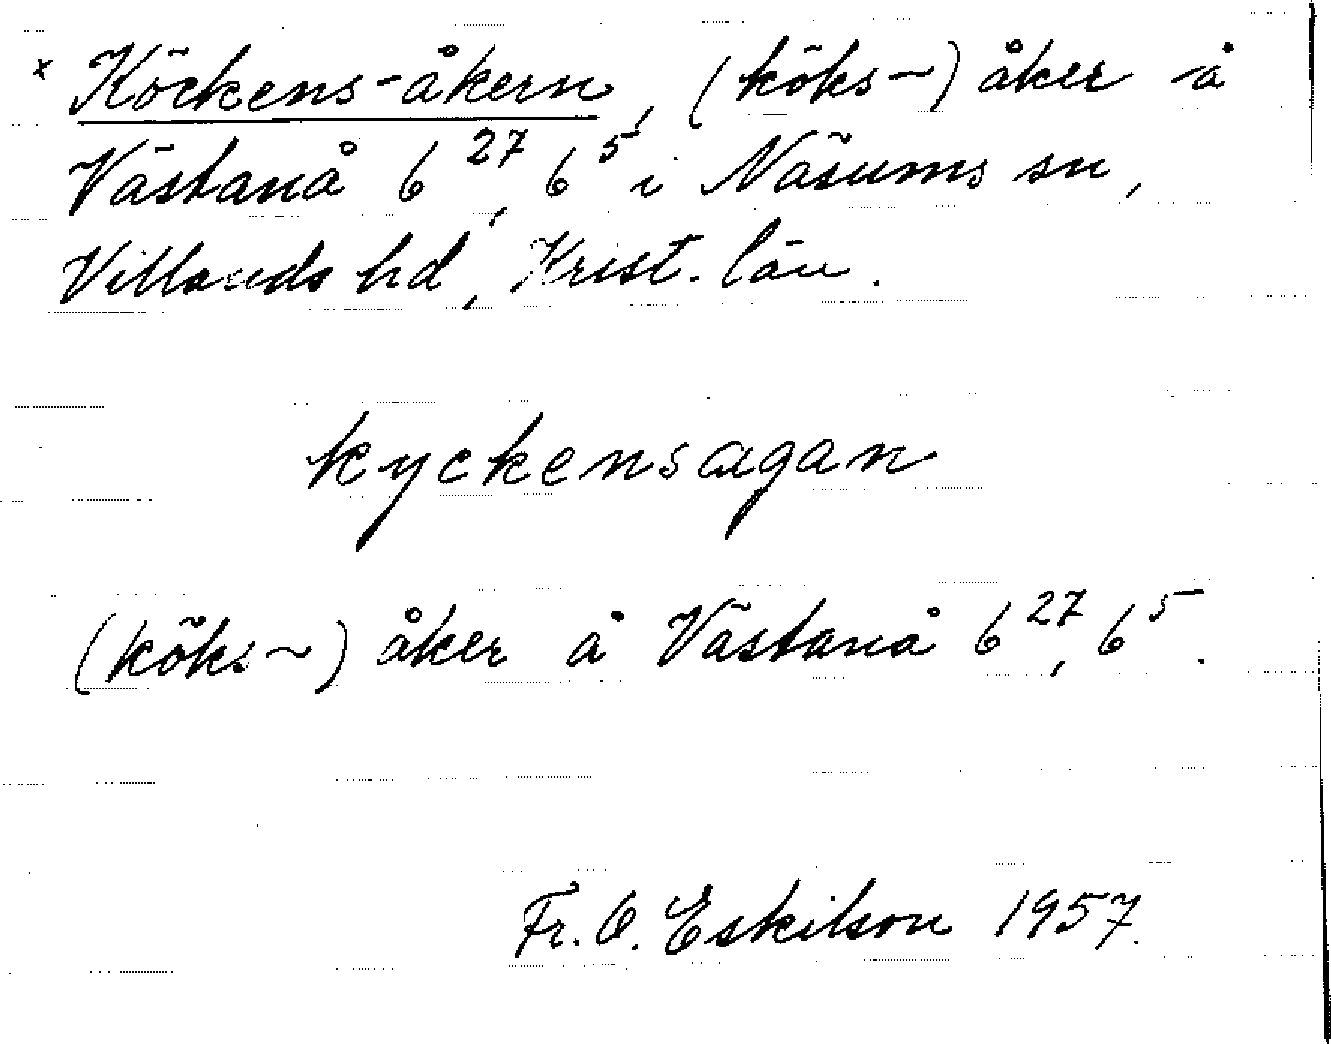 x Köckens-åkern, (köks~) åker å
Västanå 6²⁷, 6⁵ i Näsums sn,
Villands hd, Krist. län.
kyckensagan
(köks~) åker å Västanå 6²⁷, 6⁵.
Fr. O. Eskilson 1957.